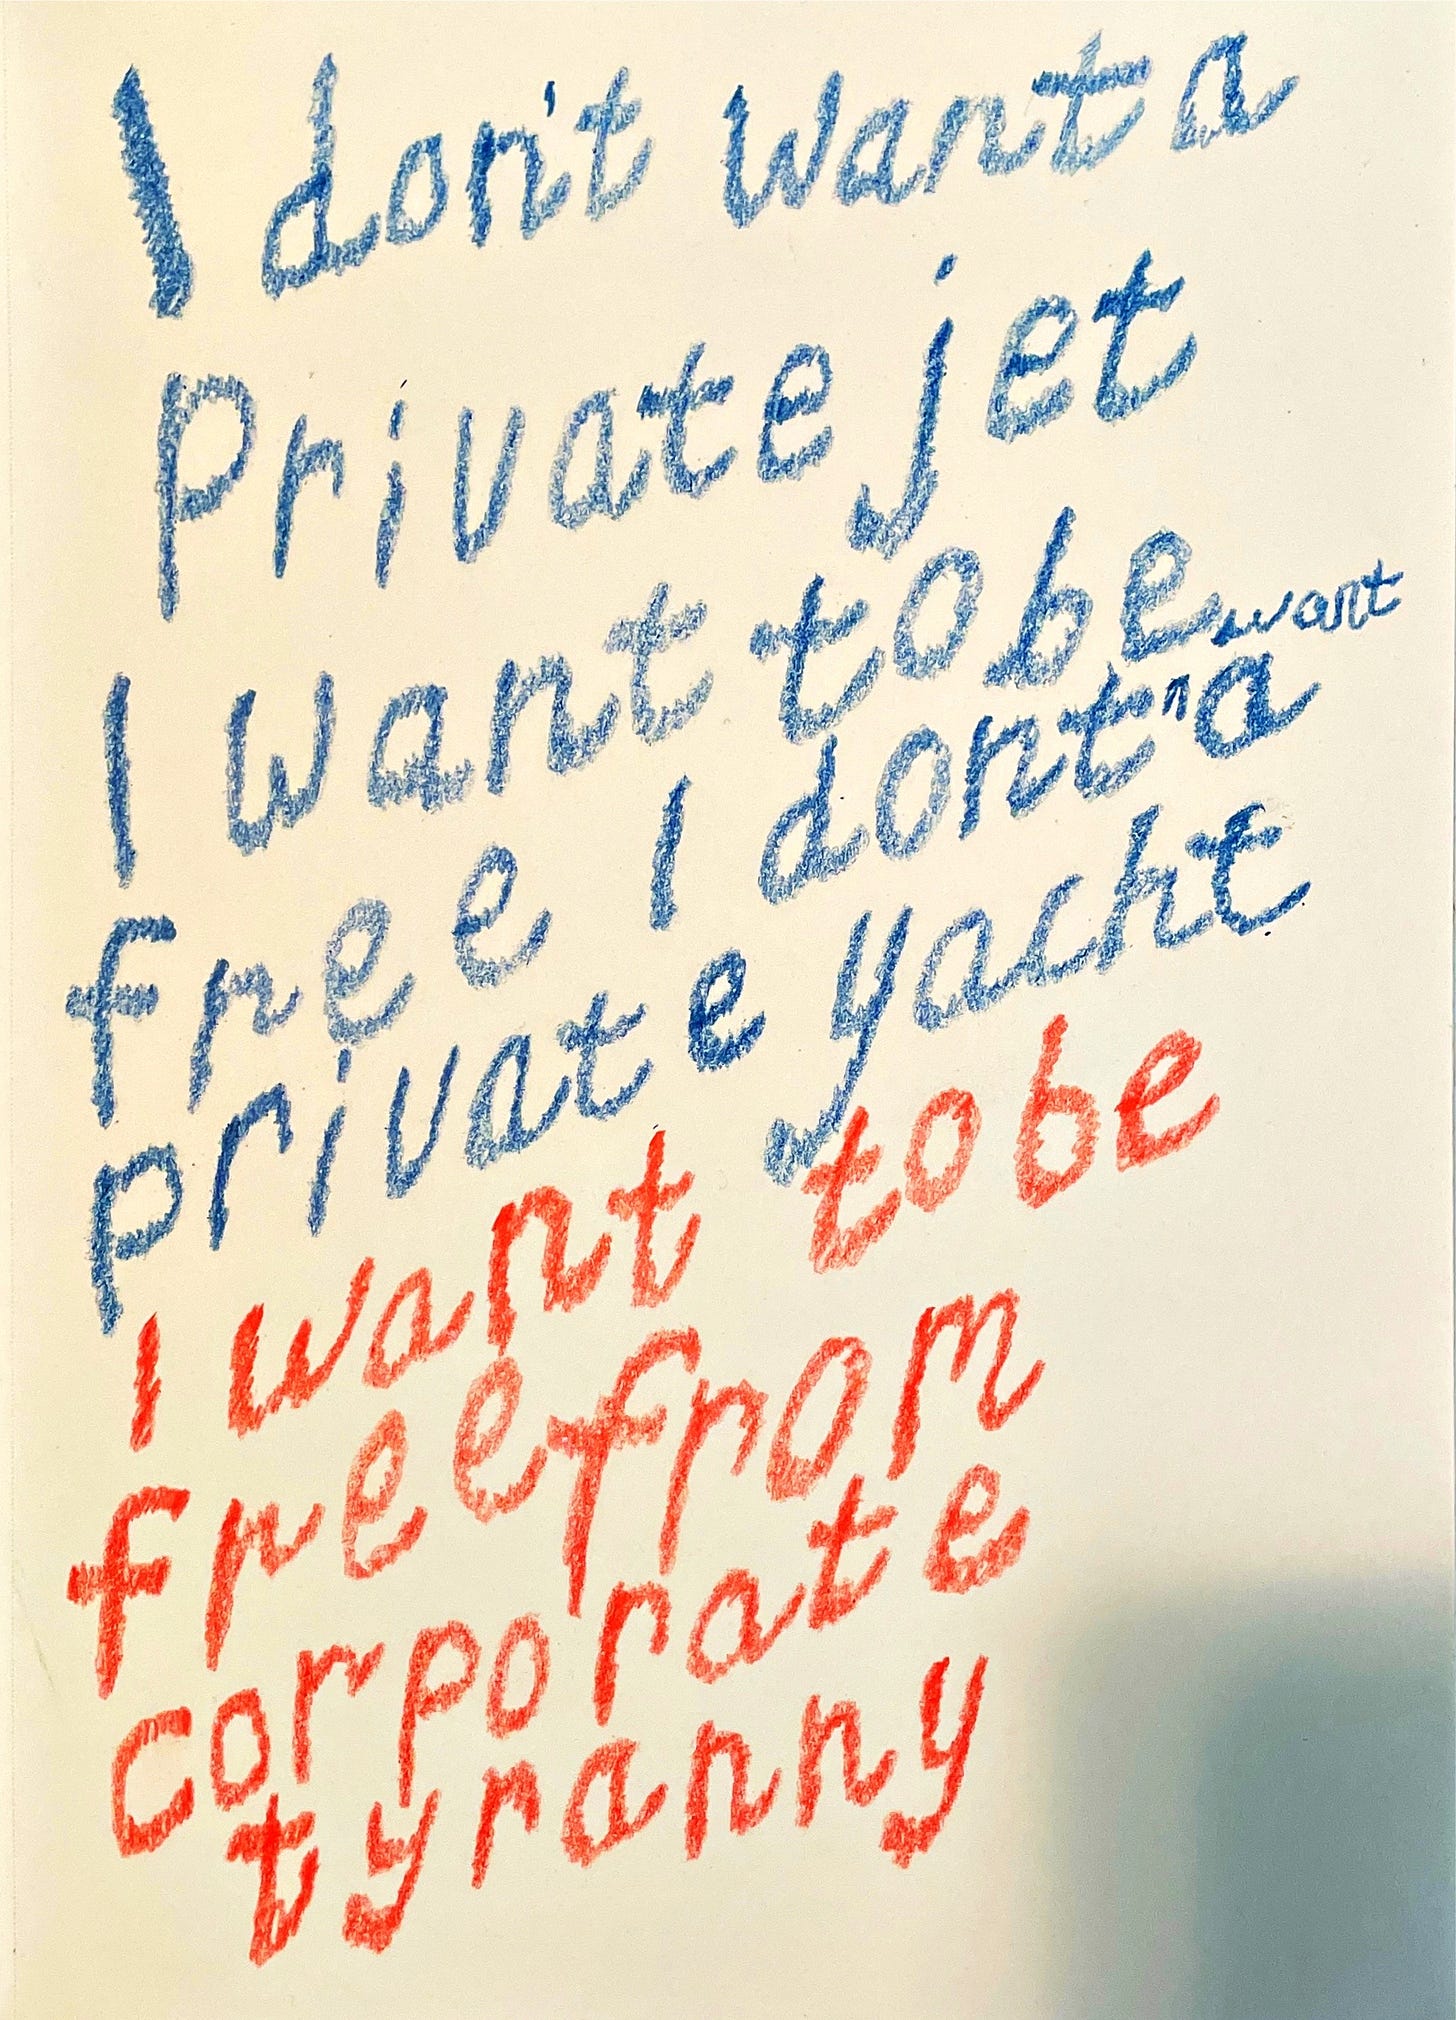 I don't want a
Private jet
I want to be
free I dont want a
private yacht
I want to be
free from
corporate
tyranny